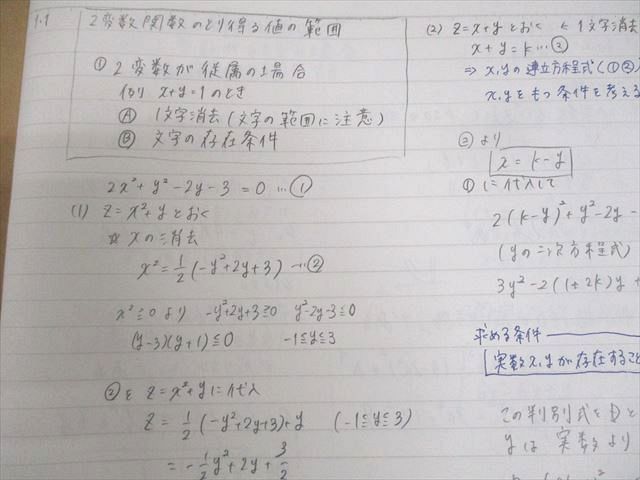 1.1
2変数関数のとり得る値の範囲
① 2変数が従属の場合
例) x+y=1のとき
Ⓐ 1文字消去(文字の範囲に注意)
Ⓑ 文字の存在条件
2x²+y²-2y-3=0 …①
(1) z=x²+yとおく
☆ xの消去
x²=1/2(-y²+2y+3) …②
x²≧0より -y²+2y+3≧0 y²-2y-3≦0
(y-3)(y+1)≦0 -1≦y≦3
②を z=x²+yに代入
z=1/2(-y²+2y+3)+y (-1≦y≦3)
=-1/2y²+2y+3/2
(2) z=x+yとおく 1文字消去
x+y=k…②
⇒ x,yの連立方程式(①②)
x,yをもつ条件を考える
②より
x=k-y
①に代入して
2(k-y)²+y²-2y-
(yの二次方程式)
3y²-2(1+2k)y+
求める条件
実数x,yが存在すること
この判別式をDと
yは実数より